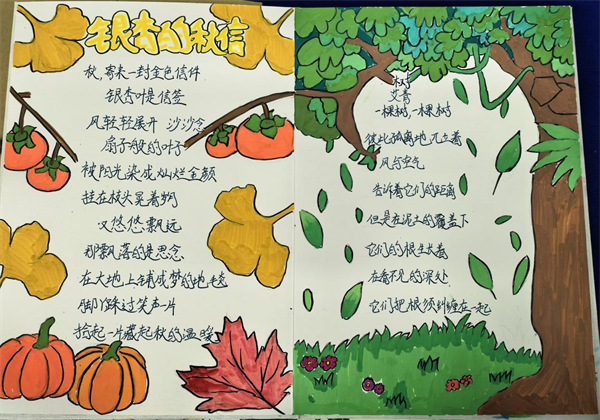 银杏的秋信
秋,寄来一封金色信件
银杏叶是信笺
风轻轻展开 沙沙念
扇子般的叶子
被阳光染成灿烂金颜
挂在枝头晃着啊
又悠悠飘远
那飘落的是思念
在大地上铺成梦的地毯
脚丫踩过笑声一片
拾起一片藏起秋的温暖
树
艾青
一棵树,一棵树
彼此孤离地兀立着
风与空气
告诉着它们的距离
但是在泥土的覆盖下
它们的根生长着
在看不见的深处
它们把根须纠缠在一起